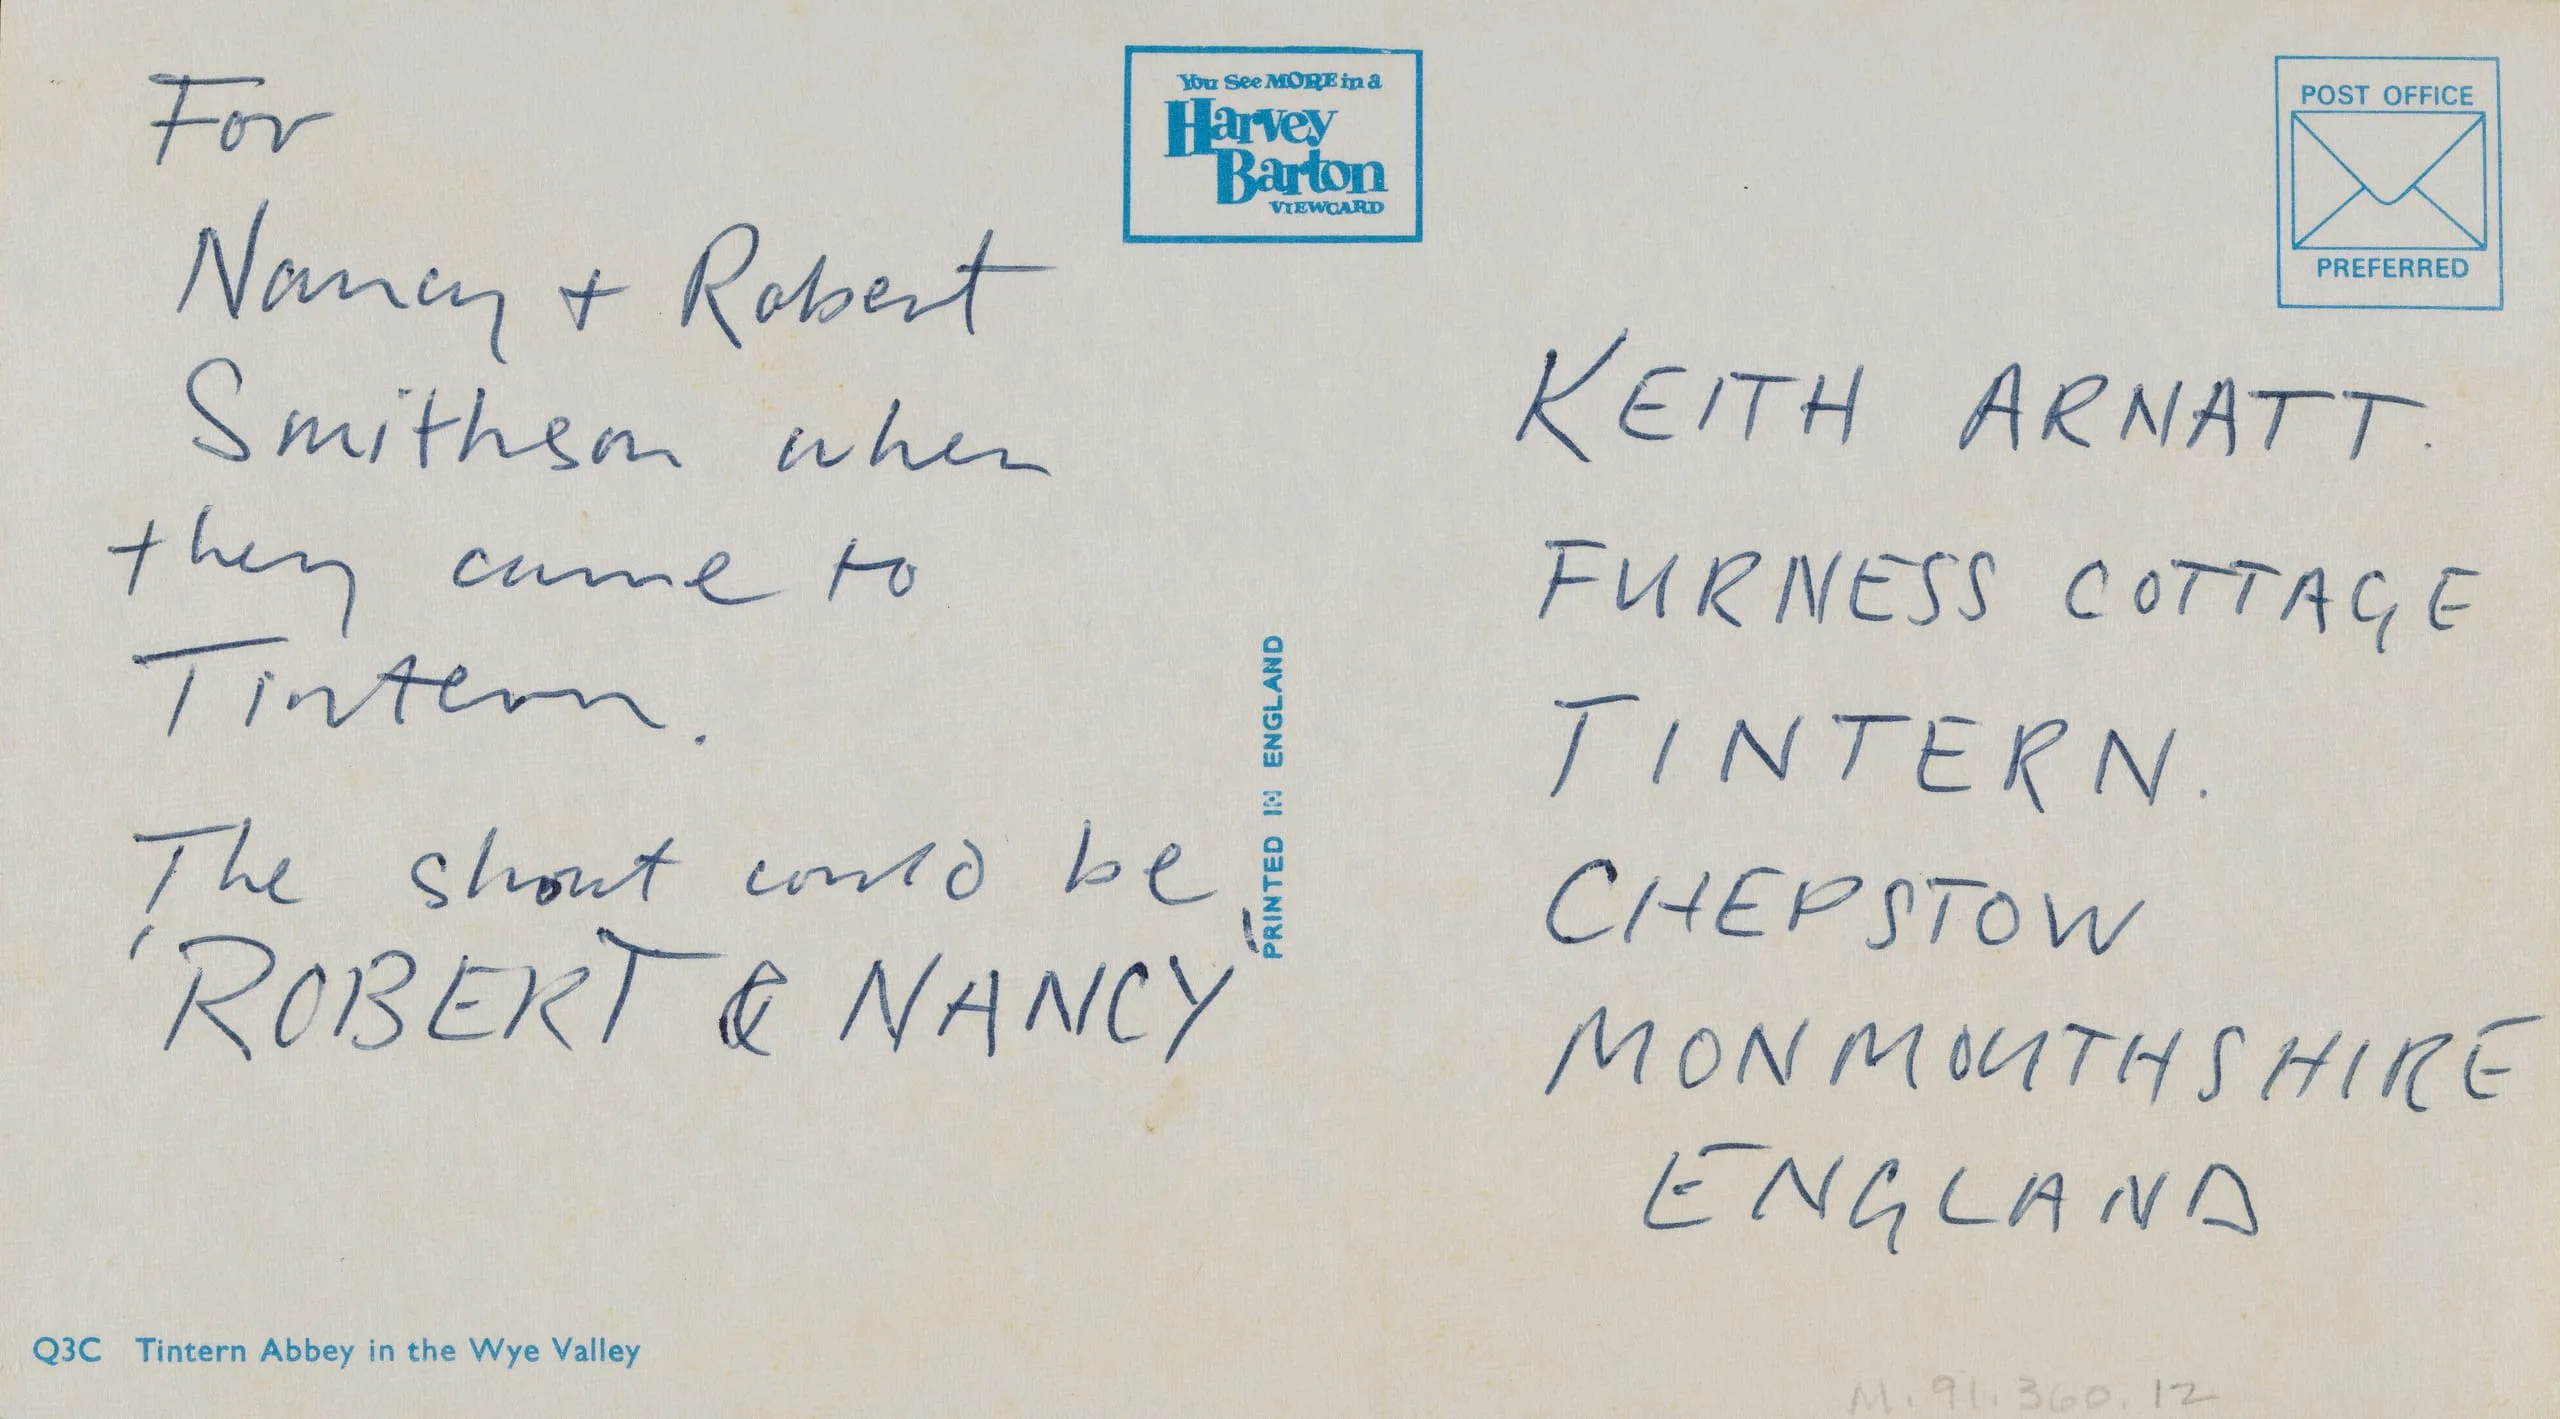 For
Nancy + Robert
Smithson when
they came to
Tintern.
The shout could be
'ROBERT & NANCY'
You See MORE in a
Harvey
Barton
VIEWCARD
PRINTED IN ENGLAND
POST OFFICE
PREFERRED
KEITH ARNATT.
FURNESS COTTAGE
TINTERN.
CHEPSTOW
MONMOUTHSHIRE
ENGLAND
Q3C Tintern Abbey in the Wye Valley
M.91.360.12